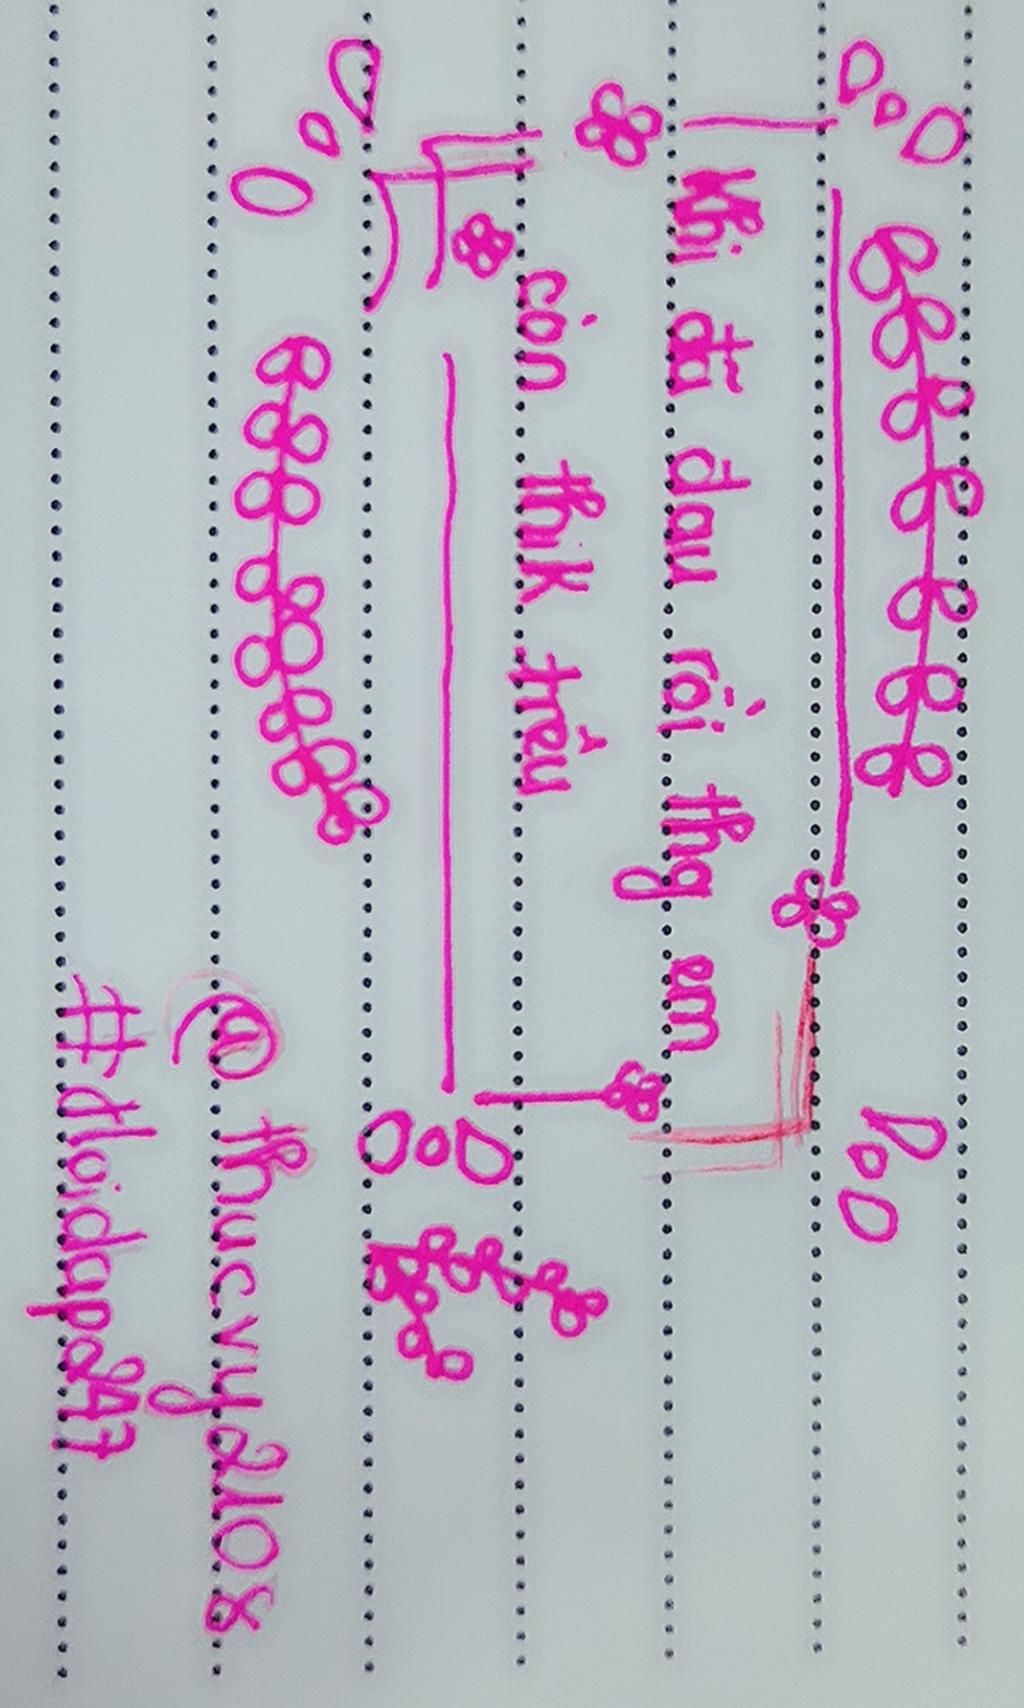 Khi đã đau rồi thg em
còn thik trêu
@thucvy2108
#dloidapa47